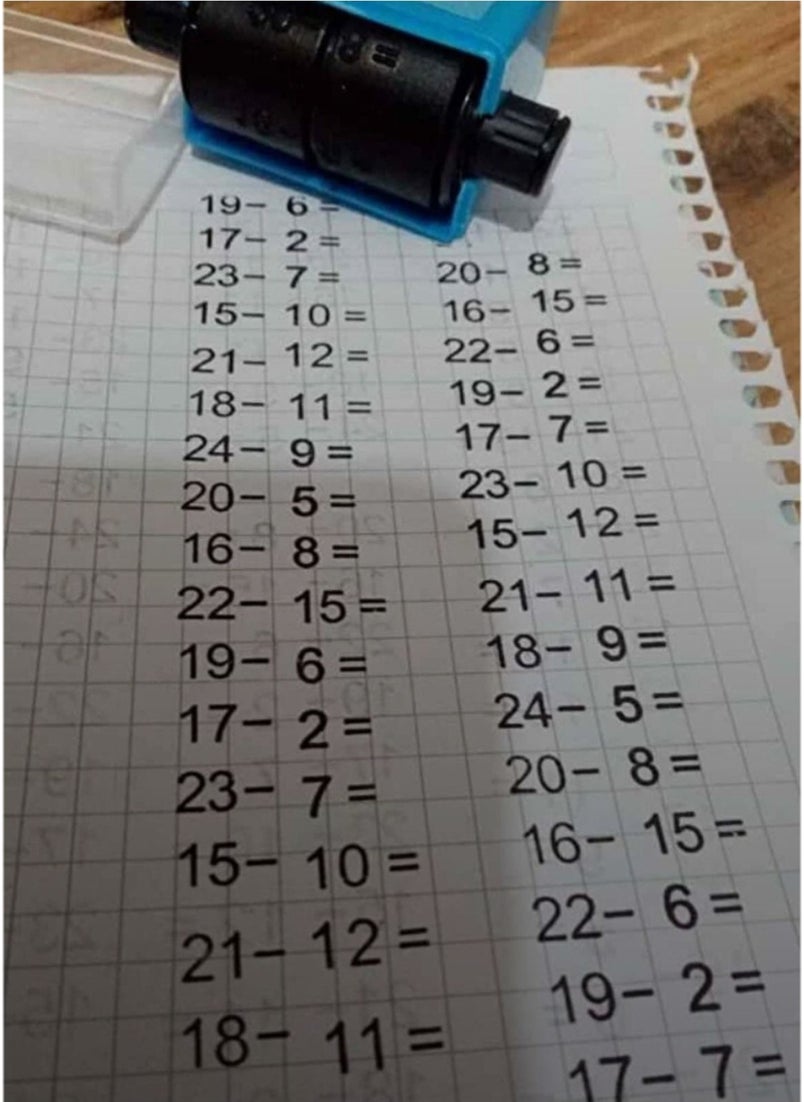 19- 6=
17- 2=
23- 7=
15- 10=
21- 12=
18- 11=
24- 9=
20- 5=
16- 8=
22- 15=
19- 6=
17- 2=
23- 7=
15- 10=
21- 12=
18- 11=
20- 8=
16- 15=
22- 6=
19- 2=
17- 7=
23- 10=
15- 12=
21- 11=
18- 9=
24- 5=
20- 8=
16- 15=
22- 6=
19- 2=
17- 7=